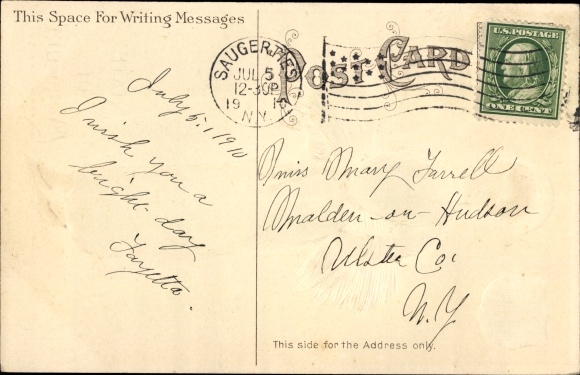 This Space For Writing Messages
POST CARD
SAUGERTIES
JUL 5
12-30P
1910
N.Y.
U.S. POSTAGE
ONE CENT
July 5, 1910
I wish you a
bright day
Fayetta.
Miss Mary Farrell
Malden-on-Hudson
Ulster Co.
N.Y.
This side for the Address only.